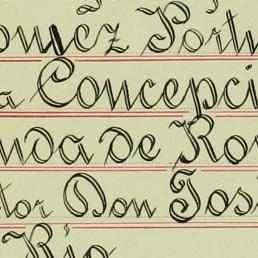 omez Portu
a Concepci
nda de Ro
tor Don Jos
Rio